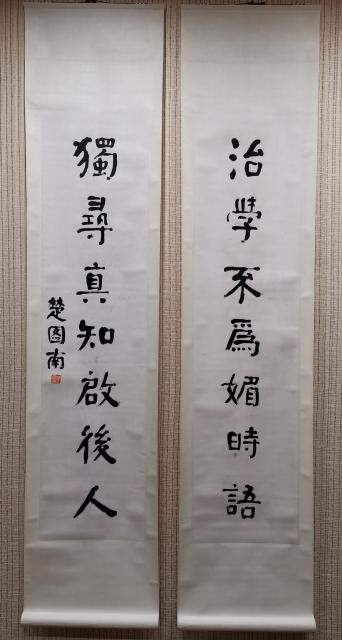 治學不爲媚時語
獨尋真知啟後人
楚图南